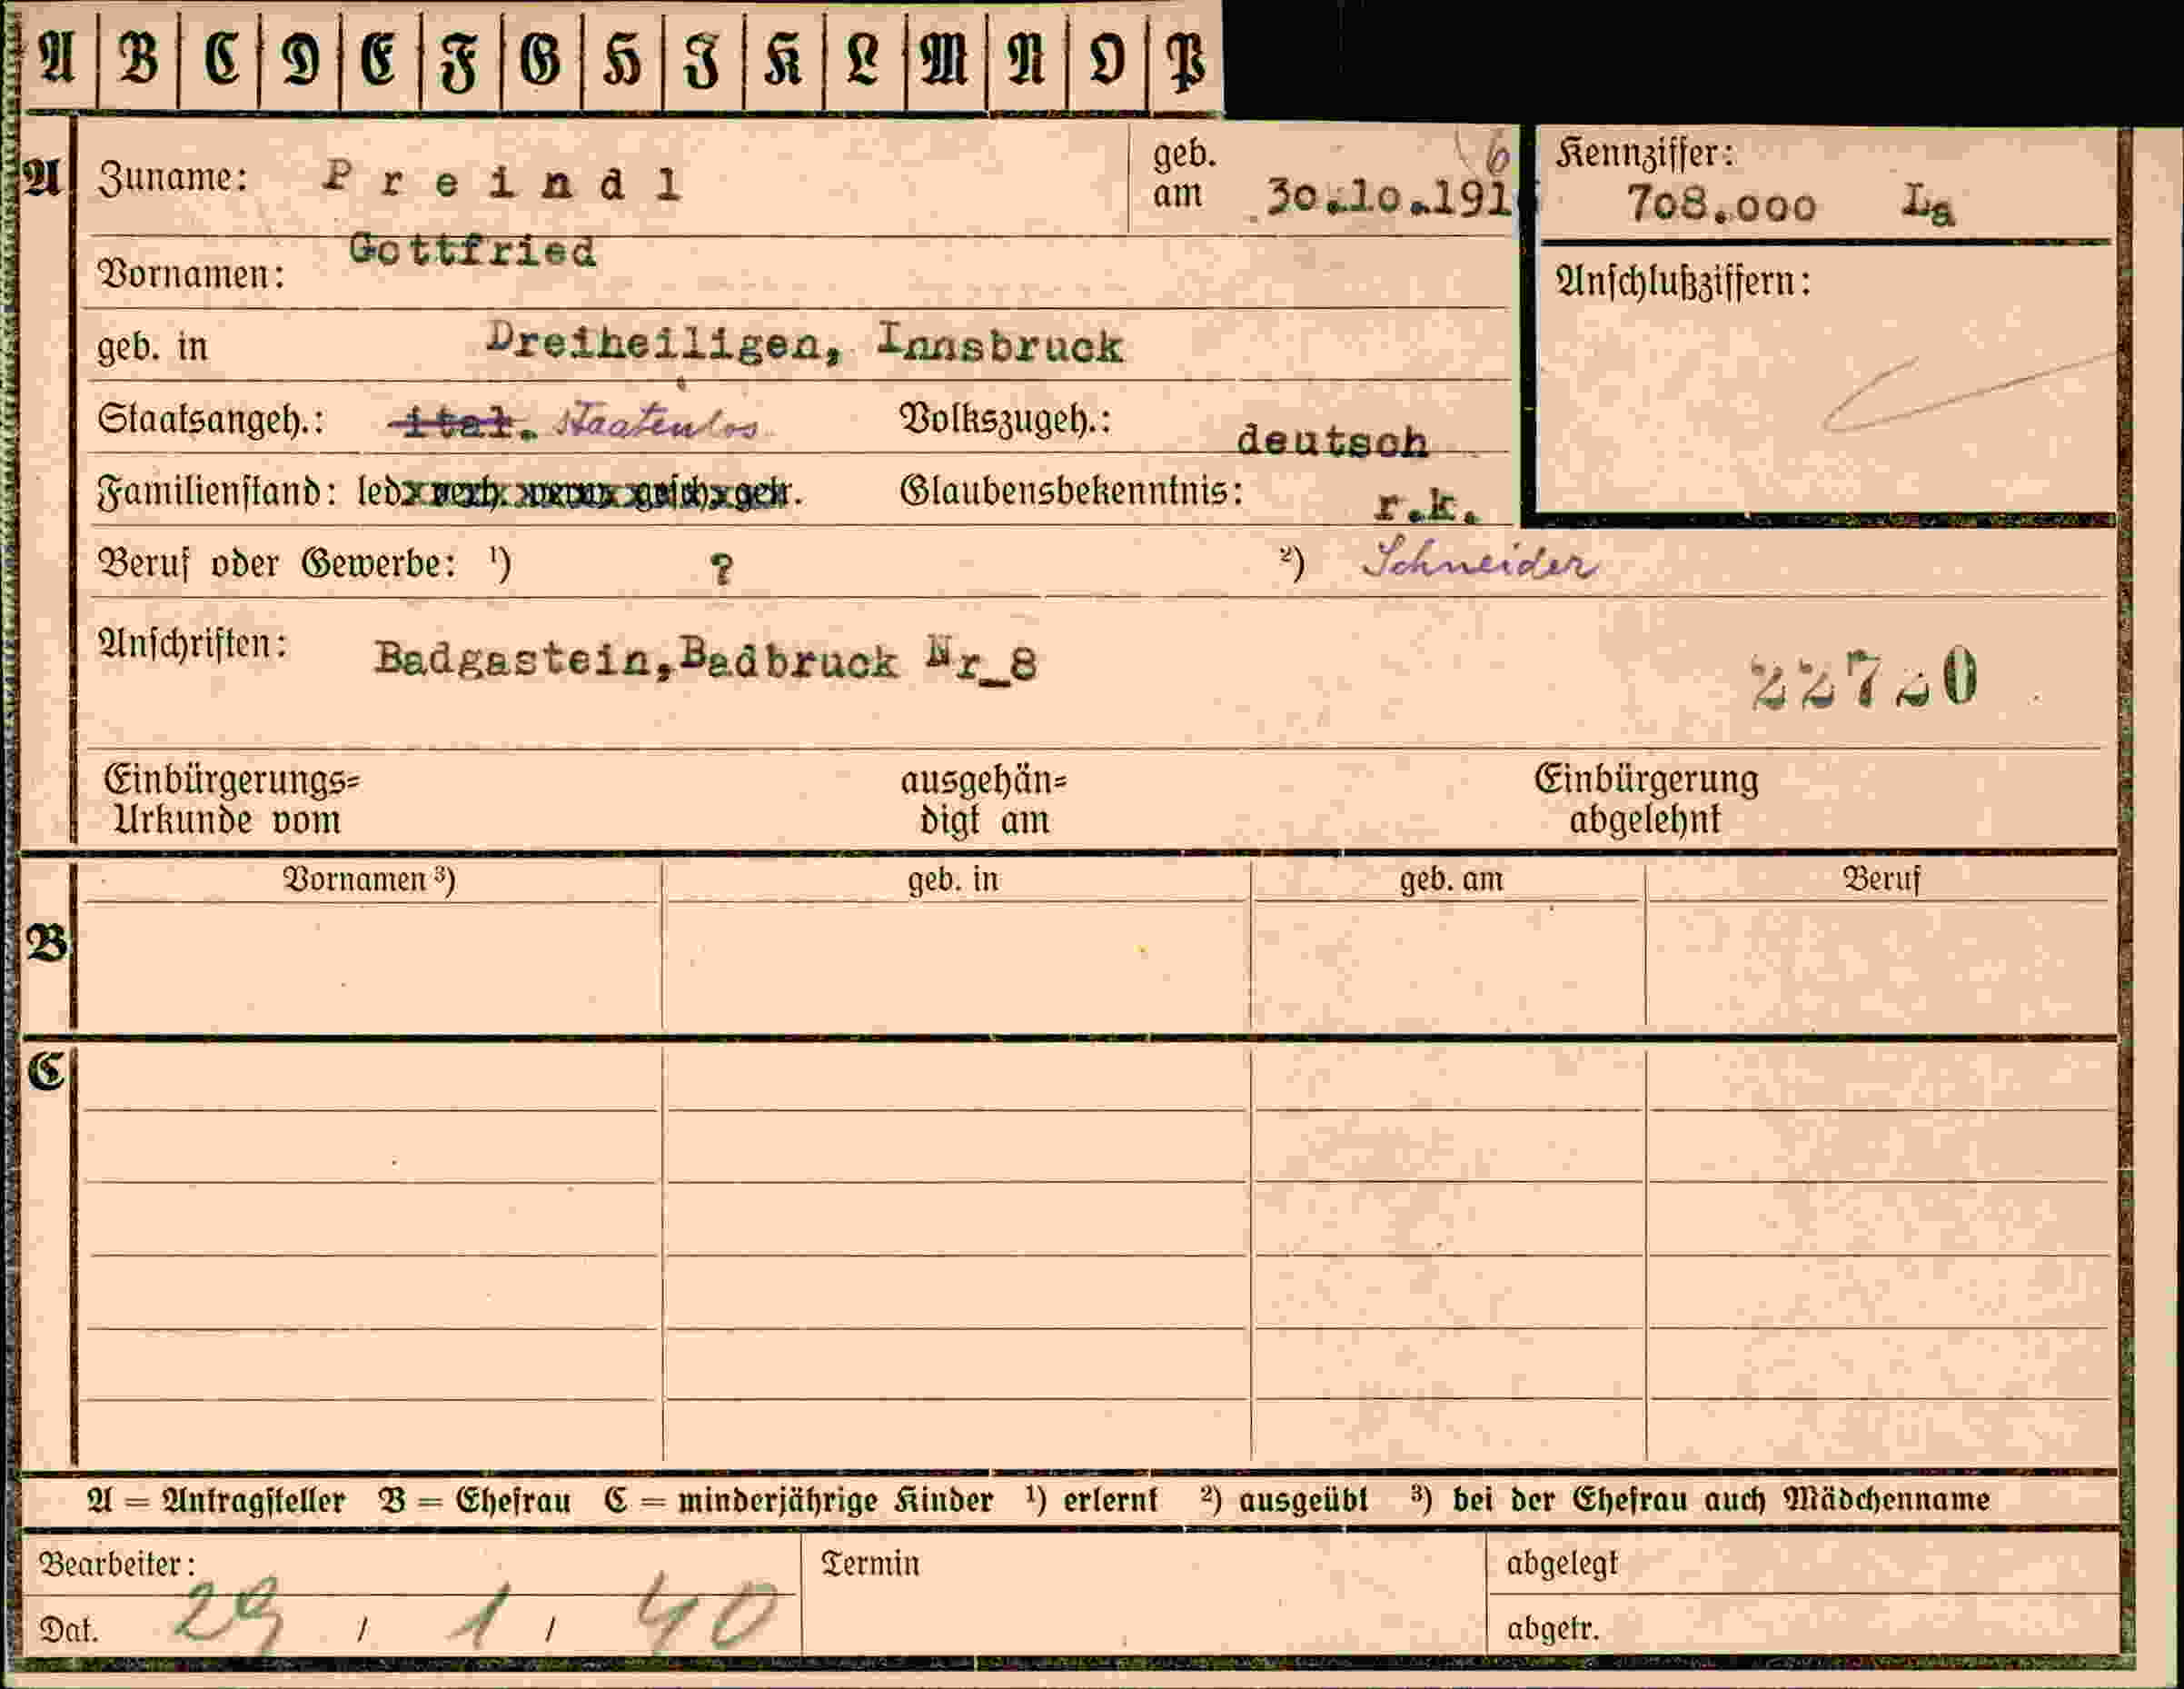 A B C D E F G H I K L M N O P
A Zuname: Preindl geb. am 30.10.191 6 Kennziffer: 708.000 La
Vornamen: Gottfried Anschlußziffern:
geb. in Dreiheiligen, Innsbruck
Staatsangeh.: ital. Staatenlos Volkszugeh.: deutsch
Familienstand: led. verh. verw. gesch. getr. Glaubensbekenntnis: r.k.
Beruf oder Gewerbe: ¹) ? ²) Schneider
Anschriften: Badgastein,Badbruck Nr_8 22720
Einbürgerungs= ausgehän= Einbürgerung
Urkunde vom digt am abgelehnt
Vornamen ³) geb. in geb. am Beruf
B
C
A = Antragsteller B = Ehefrau C = minderjährige Kinder ¹) erlernt ²) ausgeübt ³) bei der Ehefrau auch Mädchenname
Bearbeiter: Termin abgelegt
Dat. 29 / 1 / 40 abgetr.